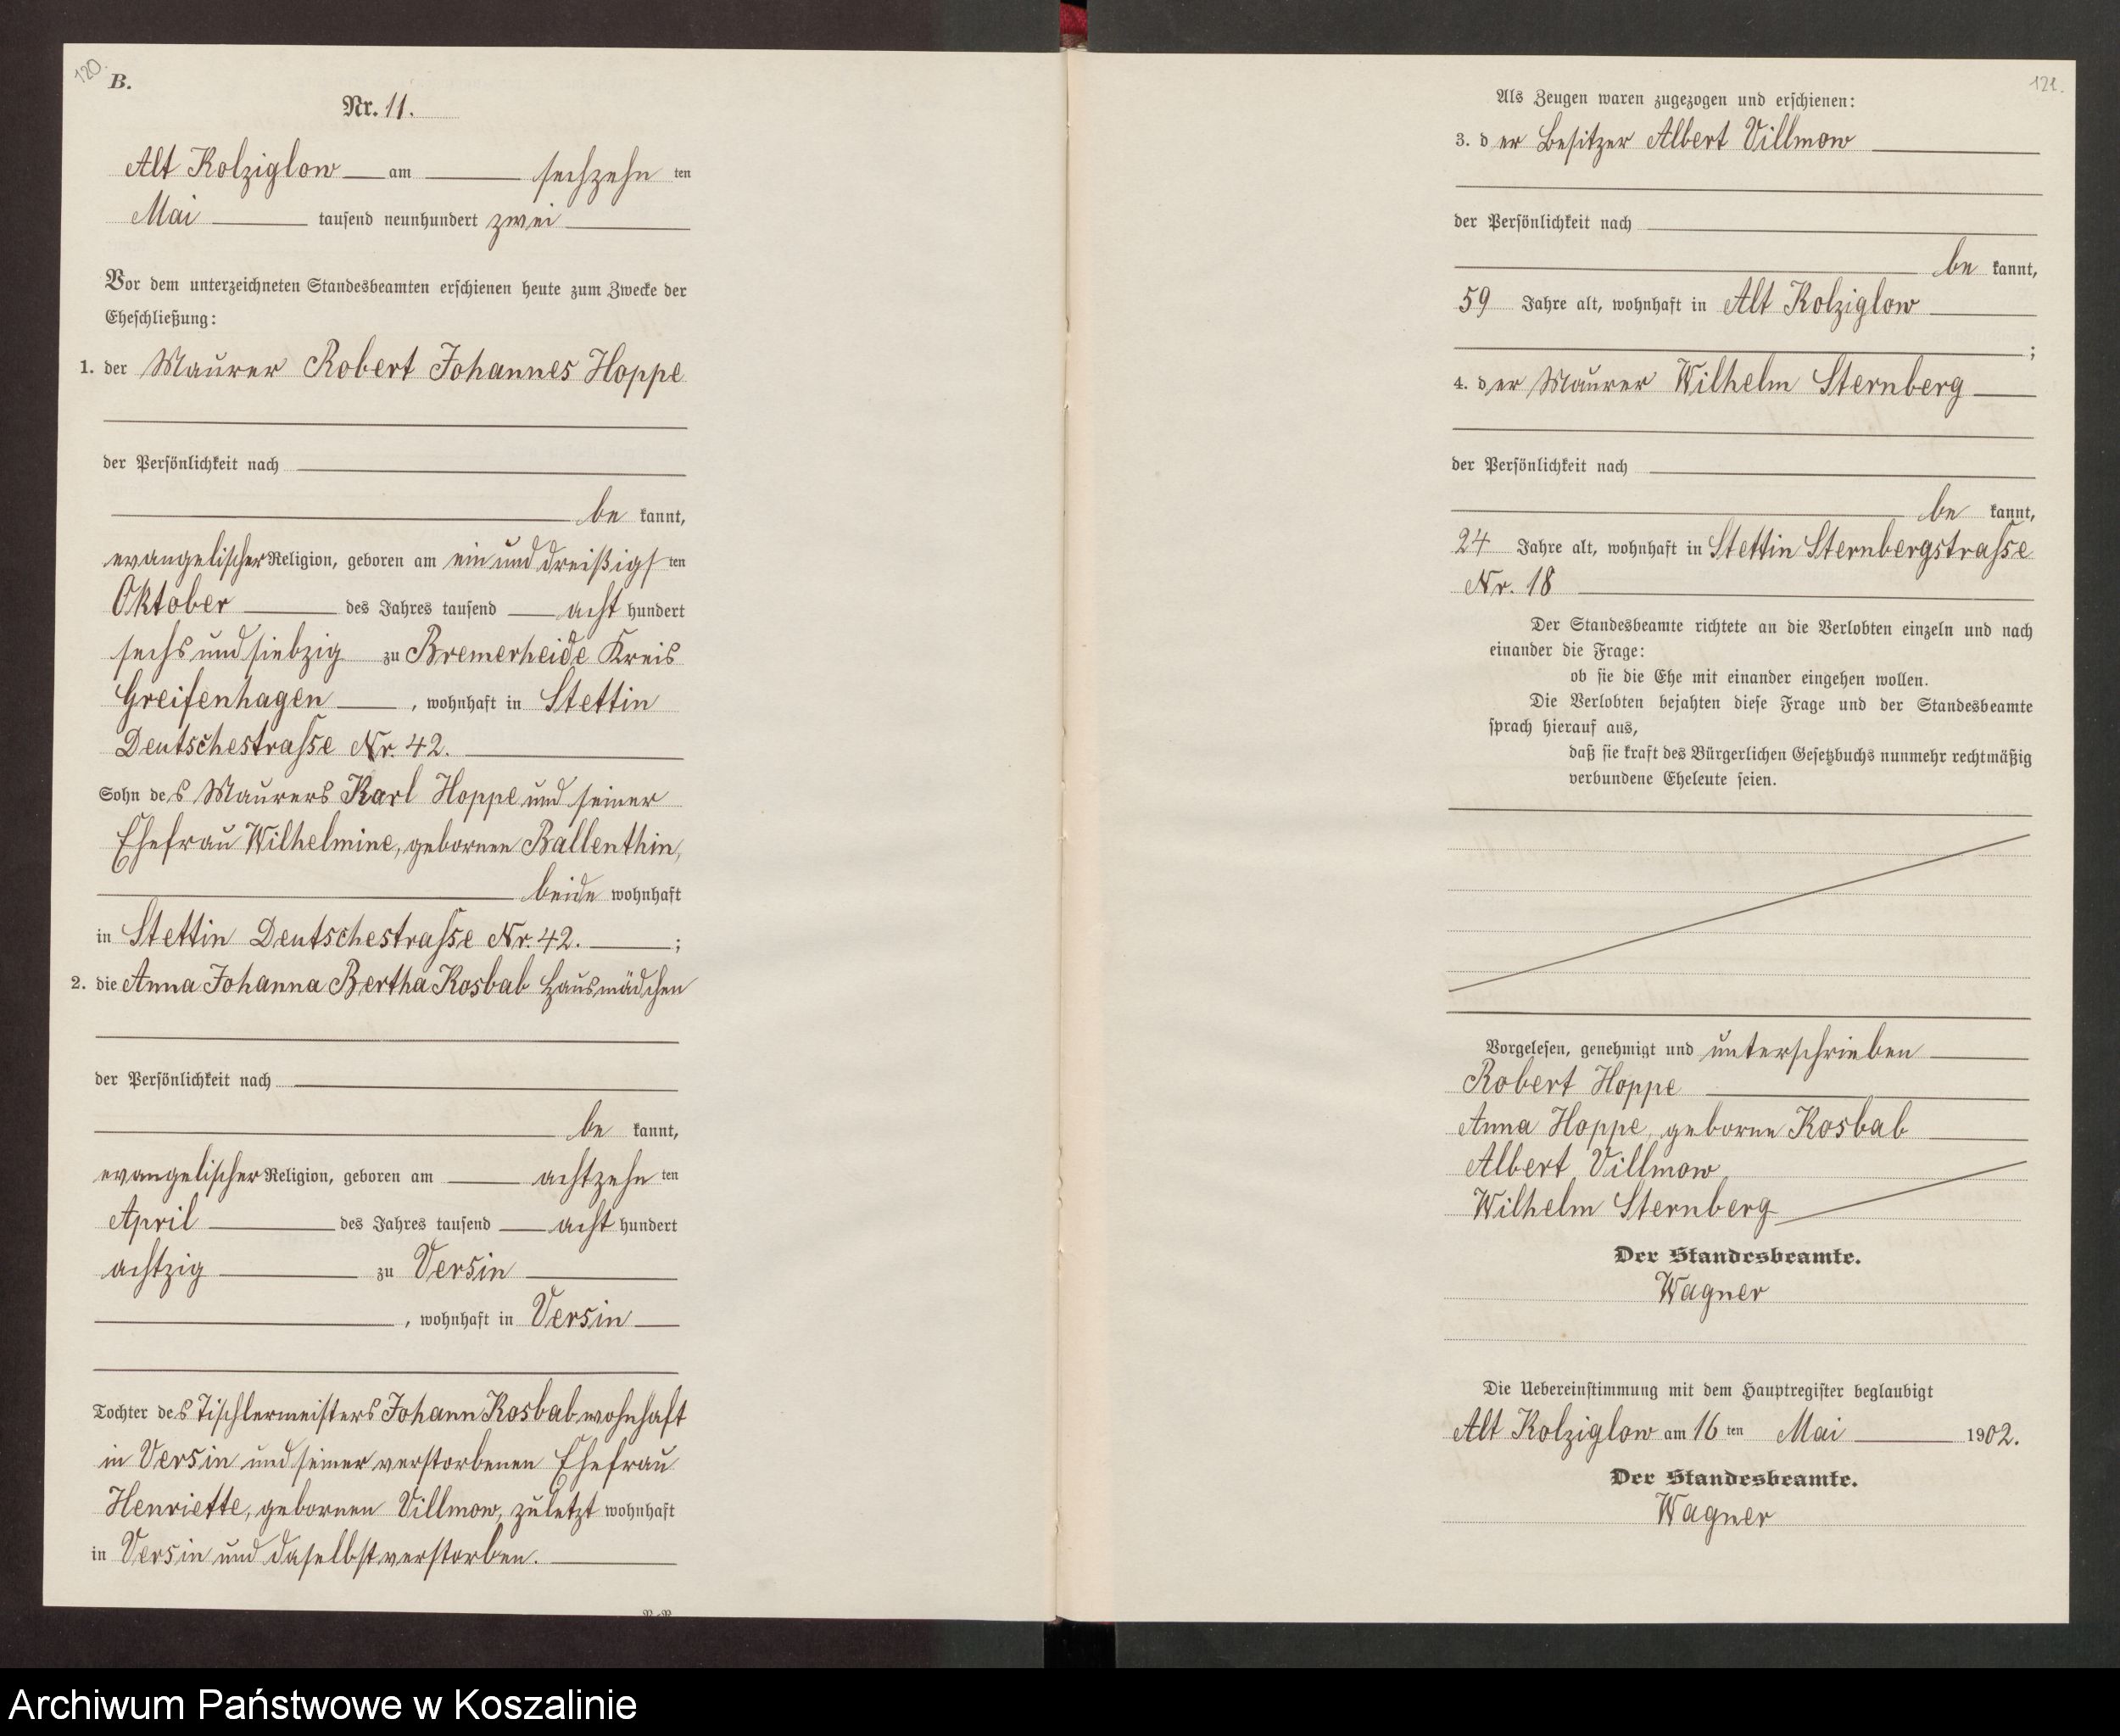 120.
B.
Nr. 11.
Alt Kolziglow am sechzehn ten
Mai tausend neunhundert zwei
Vor dem unterzeichneten Standesbeamten erschienen heute zum Zwecke der
Eheschließung:
1. der Maurer Robert Johannes Hoppe
der Persönlichkeit nach
be kannt,
evangelischer Religion, geboren am ein und dreißigs ten
Oktober des Jahres tausend acht hundert
sechs und siebzig zu Bremerheide Kreis
Greifenhagen , wohnhaft in Stettin
Deutschestrasse Nr. 42.
Sohn des Maurers Karl Hoppe und seiner
Ehefrau Wilhelmine, gebornen Ballenthin,
beide wohnhaft
in Stettin Deutschestrasse Nr. 42. ;
2. die Anna Johanna Bertha Kosbab Hausmädchen
der Persönlichkeit nach
be kannt,
evangelischer Religion, geboren am achtzehn ten
April des Jahres tausend acht hundert
achtzig zu Versin
, wohnhaft in Versin
Tochter des Tischlermeisters Johann Kosbab wohnhaft
in Versin und seiner verstorbenen Ehefrau
Henriette, gebornen Villmow, zuletzt wohnhaft
in Versin und daselbst verstorben.
121.
Als Zeugen waren zugezogen und erschienen:
3. der Besitzer Albert Villmow
der Persönlichkeit nach
be kannt,
59 Jahre alt, wohnhaft in Alt Kolziglow
;
4. der Maurer Wilhelm Sternberg
der Persönlichkeit nach
be kannt,
24 Jahre alt, wohnhaft in Stettin Sternbergstrasse
Nr. 18
Der Standesbeamte richtete an die Verlobten einzeln und nach
einander die Frage:
ob sie die Ehe mit einander eingehen wollen.
Die Verlobten bejahten diese Frage und der Standesbeamte
sprach hierauf aus,
daß sie kraft des Bürgerlichen Gesetzbuchs nunmehr rechtmäßig
verbundene Eheleute seien.
Vorgelesen, genehmigt und unterschrieben
Robert Hoppe
Anna Hoppe, geborne Kosbab
Albert Villmow
Wilhelm Sternberg
Der Standesbeamte.
Wagner
Die Uebereinstimmung mit dem Hauptregister beglaubigt
Alt Kolziglow am 16 ten Mai 1902.
Der Standesbeamte.
Wagner
Archiwum Państwowe w Koszalinie